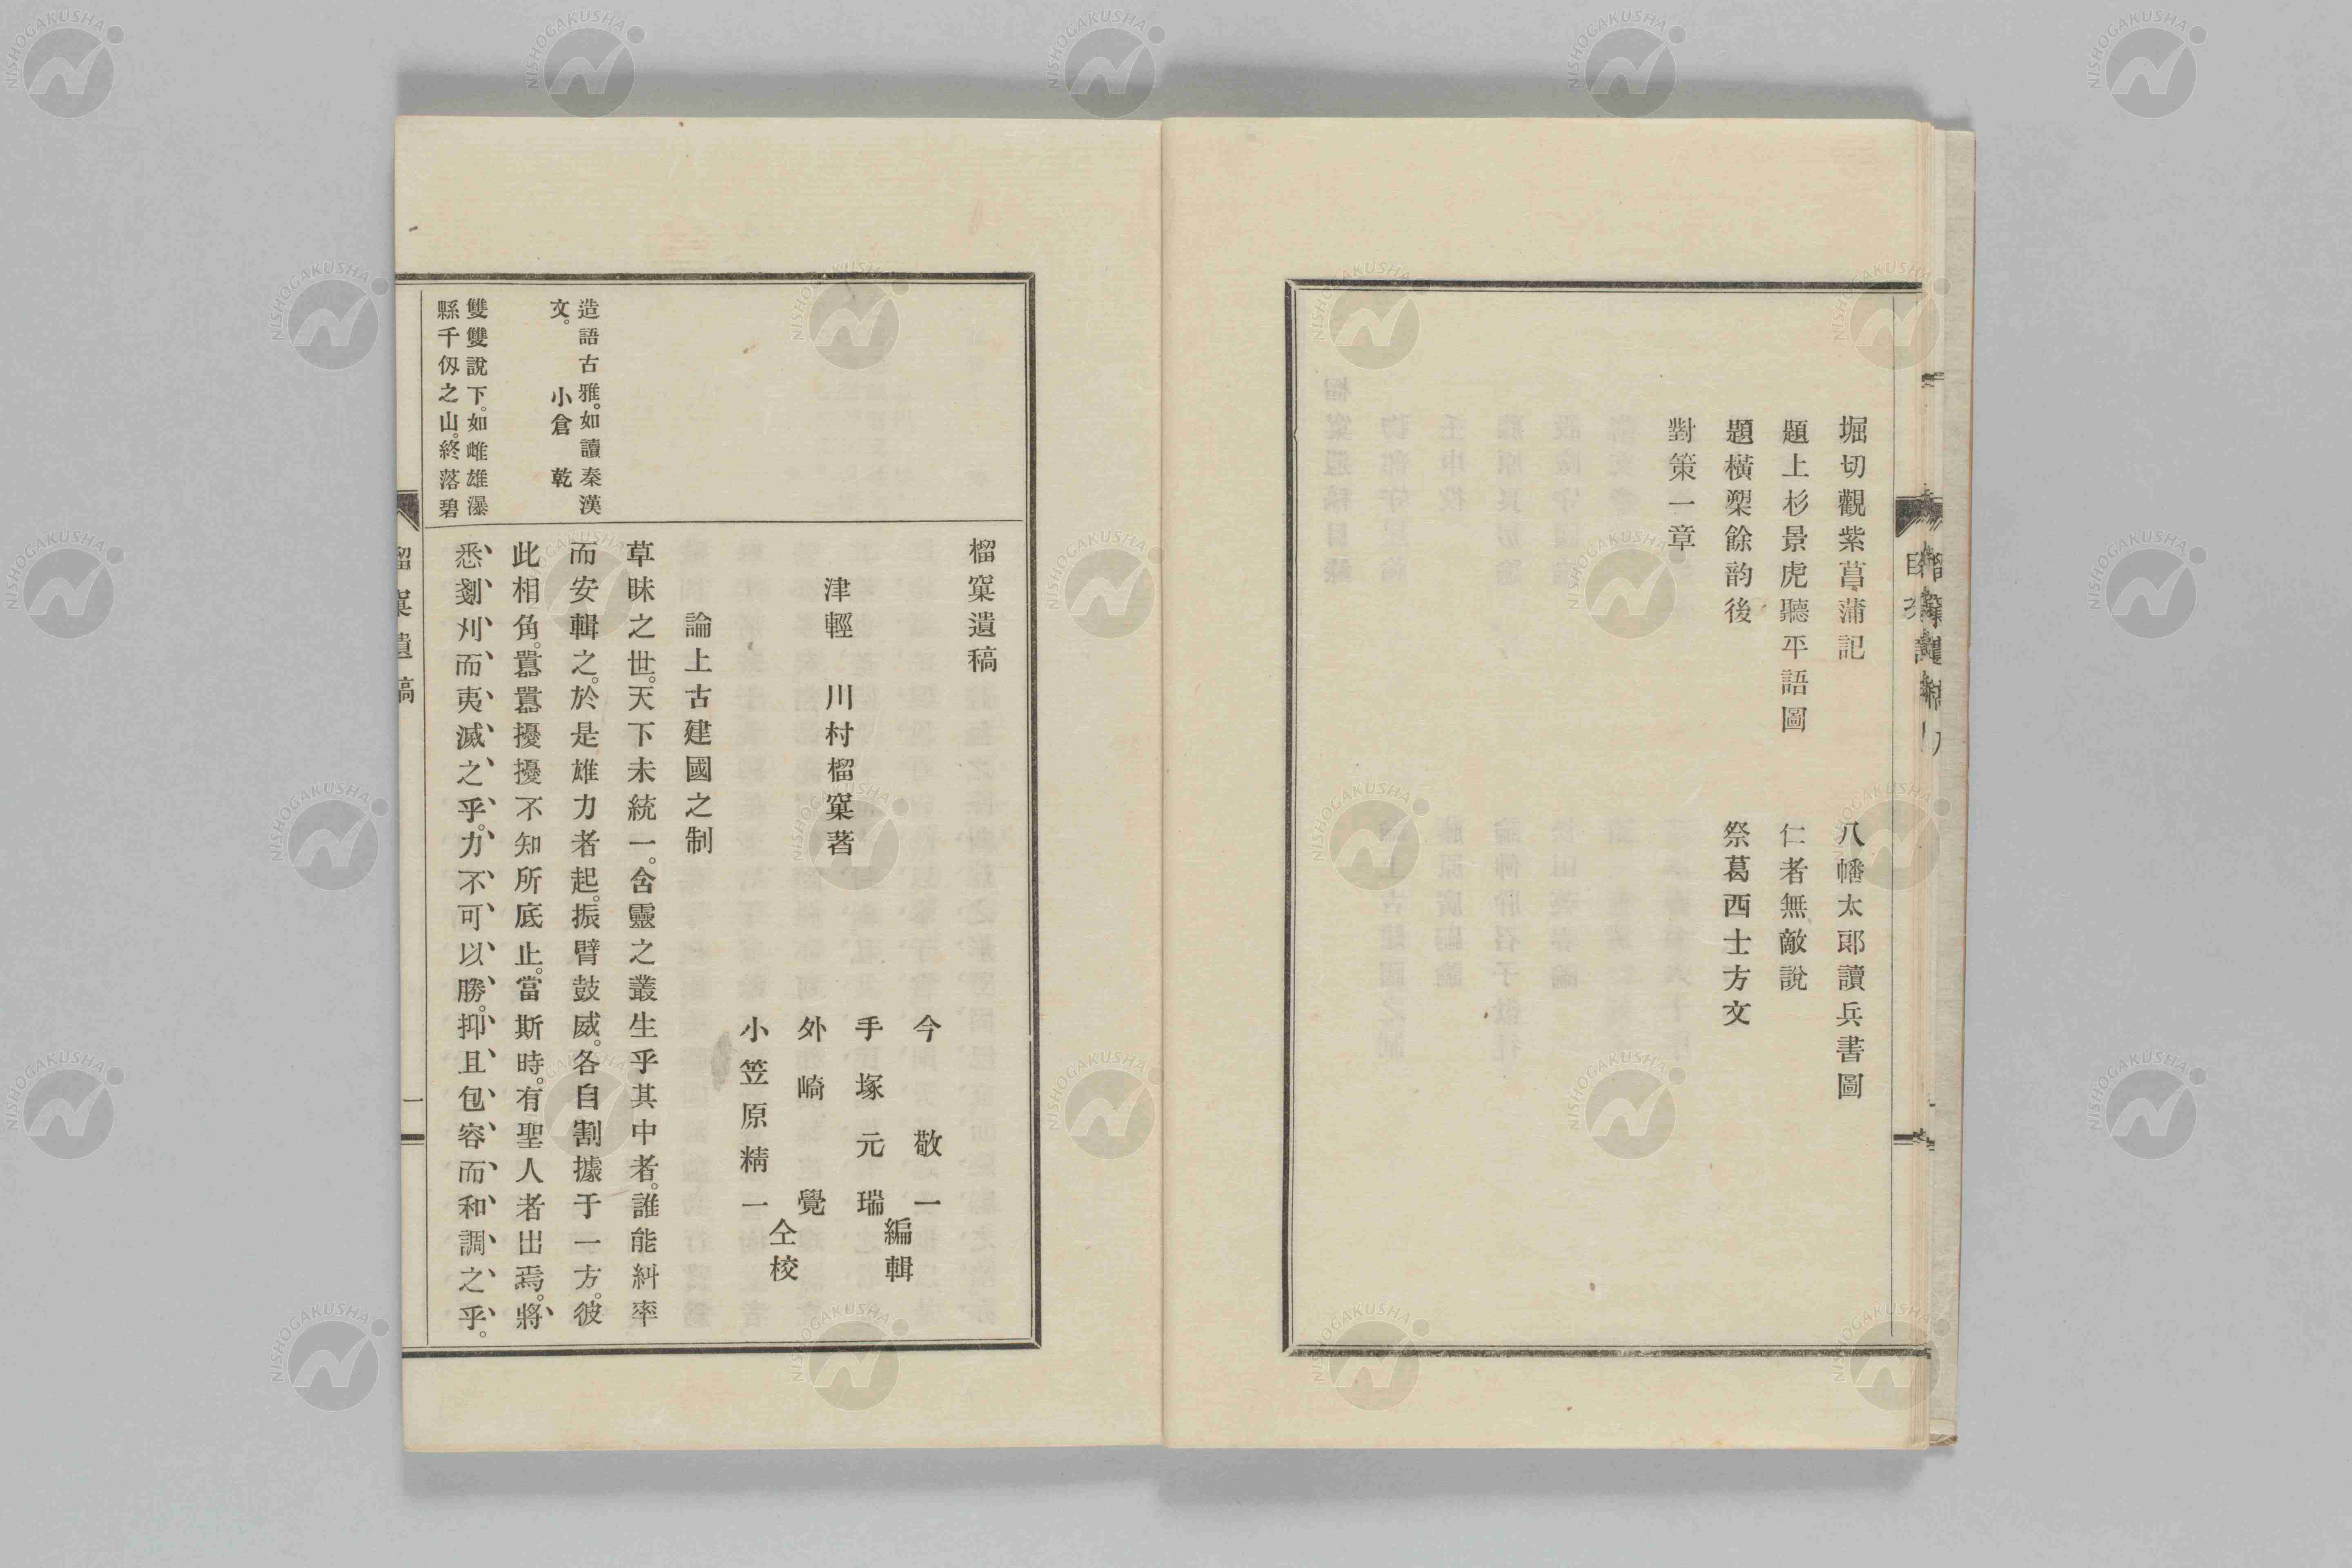 堀切觀紫菖蒲記
八幡太郎讀兵書圖
題上杉景虎聽平語圖
仁者無敵說
題橫槊餘韵後
祭葛西士方文
對策一章
榴窠遺稿
津輕 川村榴窠著
今敬一
手塚元瑞
編輯
外崎覺
小笠原精一
仝校
論上古建國之制
草昧之世。天下未統一。含靈之叢生乎其中者。誰能糾率
而安輯之。於是雄力者起。振臂鼓威。各自割據于一方。彼
此相角。囂囂擾擾不知所底止。當斯時。有聖人者出焉。將
悉剗刈而夷滅之乎。力不可以勝。抑且包容而和調之乎。
造語古雅。如讀秦漢
文。 小倉 乾
雙雙說下。如雌雄瀑
縣千仭之山。終落碧
榴窠遺稿
一
NISHOGAKUSHA